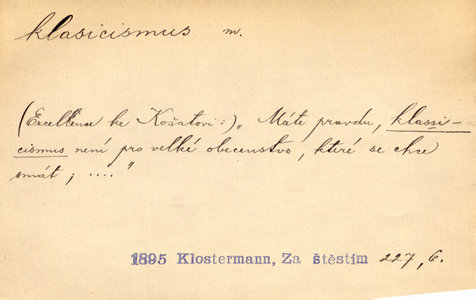 klasicismus m.
(Excellence ke Košatovi:) „Máte pravdu, klassi-
cismus není pro velké obecenstvo, které se chce
smát; ...."
1895 Klostermann, Za štěstím 227, 6.